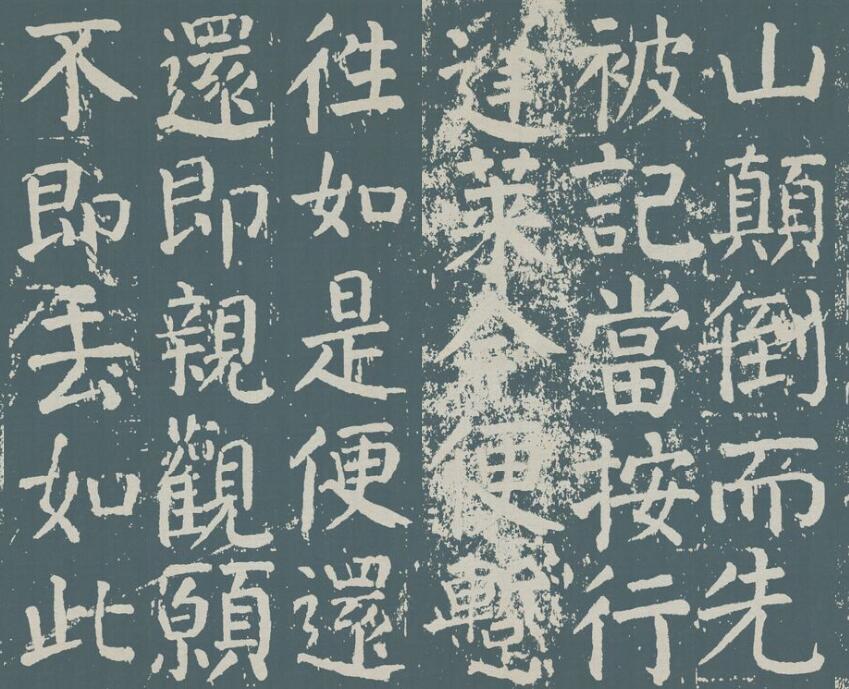 山顛倒而先
被記當按行
蓬萊今便蹔
徃如是便還
還即親觀願
不即去如此